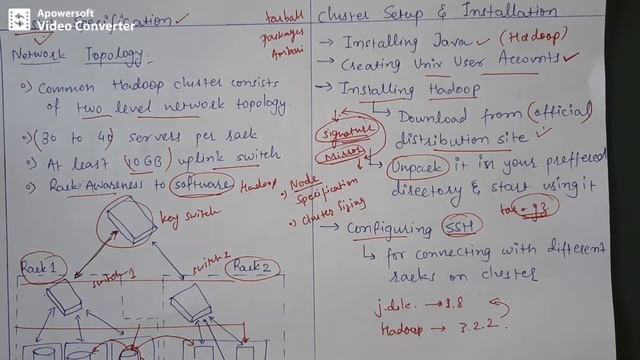 Apowersoft
Video Converter
Specification
tarball
Packages
Ambari
Network Topology
o) Common Hadoop cluster consists
of two level network topology.
o) (30 to 40) servers per rack
o) At least (10 GB) uplink switch
o) Rack Awareness to software Hadoop
key switch
Rack 1
switch-1
switch-2
Rack 2
Cluster Setup & Installation
→ Installing Java (Hadoop)
→ Creating Unix User Accounts
→ Installing Hadoop
→ Download from (official)
distribution site
signature
Mirror
→ Unpack it in your preffered
directory & start using it
tar - gz
•) Node
specification
•) Cluster Sizing
→ Configuring SSH
↳ for connecting with different
racks on cluster
→ 1.8
Hadoop → 3.2.2.